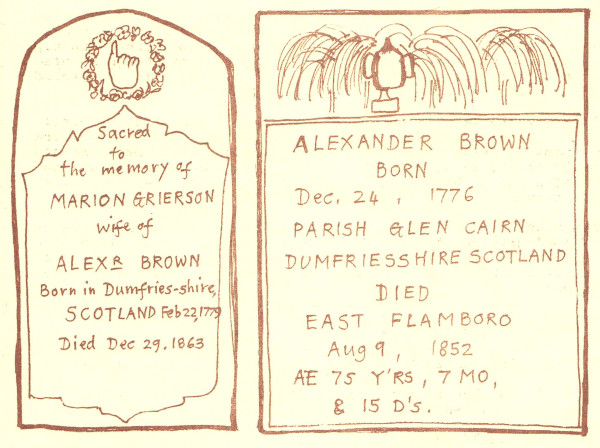 Sacred
to
the memory of
MARION GRIERSON
wife of
ALEXR BROWN
Born in Dumfries-shire,
SCOTLAND Feb 22, 1779
Died Dec 29. 1863
ALEXANDER BROWN
BORN
Dec. 24, 1776
PARISH GLEN CAIRN
DUMFRIESSHIRE SCOTLAND
DIED
EAST FLAMBORO
Aug 9, 1852
AE 75 Y'RS, 7 MO,
& 15 D's.